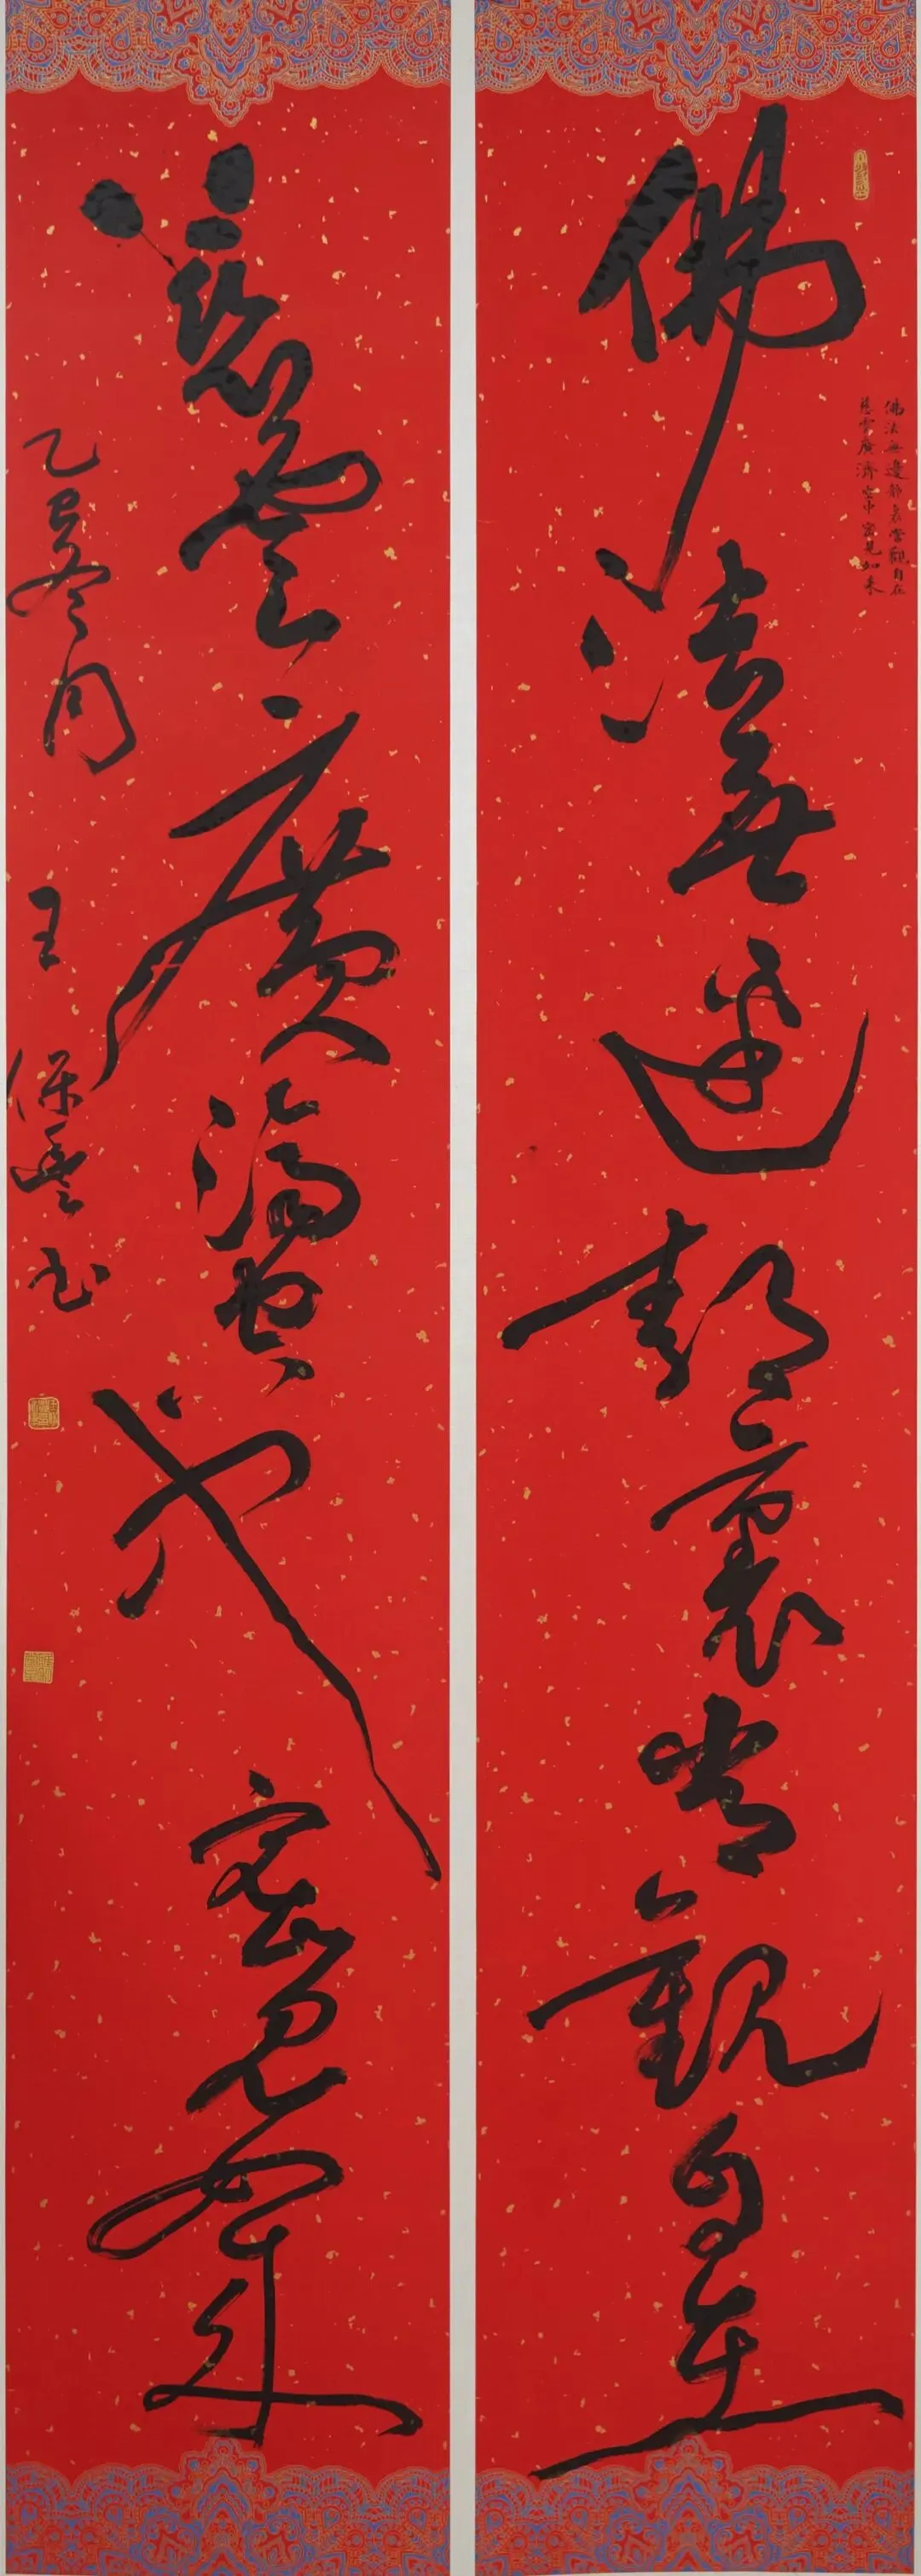 佛法無邊靜裏常觀自在
佛法無邊靜裏常觀自在
慈雲廣濟空中密見如来
慈雲廣濟空中密見如来
乙巳冬月
王保书